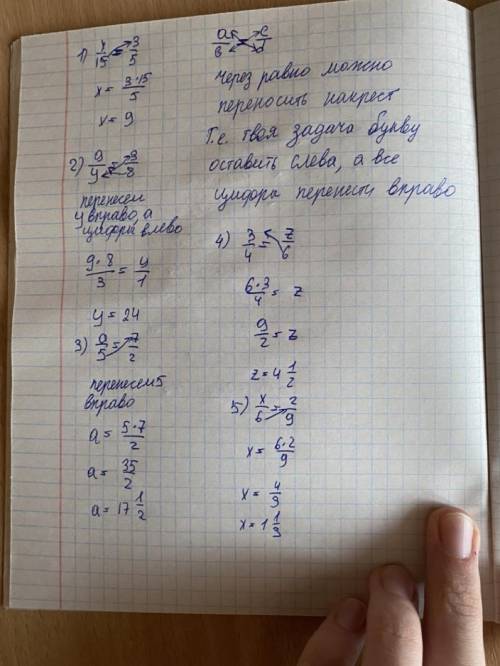 1) x/15 = 3/5
x = 3·15/5
x = 9
2) 9/y = 3/8
перенесем
y вправо, а
цифры влево
9·8/3 = y/1
y = 24
3) a/5 = 7/2
перенесем 5
вправо
a = 5·7/2
a = 35/2
a = 17 1/2
a/b = c/d
через равно можно
переносить накрест
Т.е. твоя задача букву
оставить слева, а все
цифры перенести вправо
4) 3/4 = z/6
6·3/4 = z
9/2 = z
z = 4 1/2
5) x/6 = 2/9
x = 6·2/9
x = 4/3
x = 1 1/3